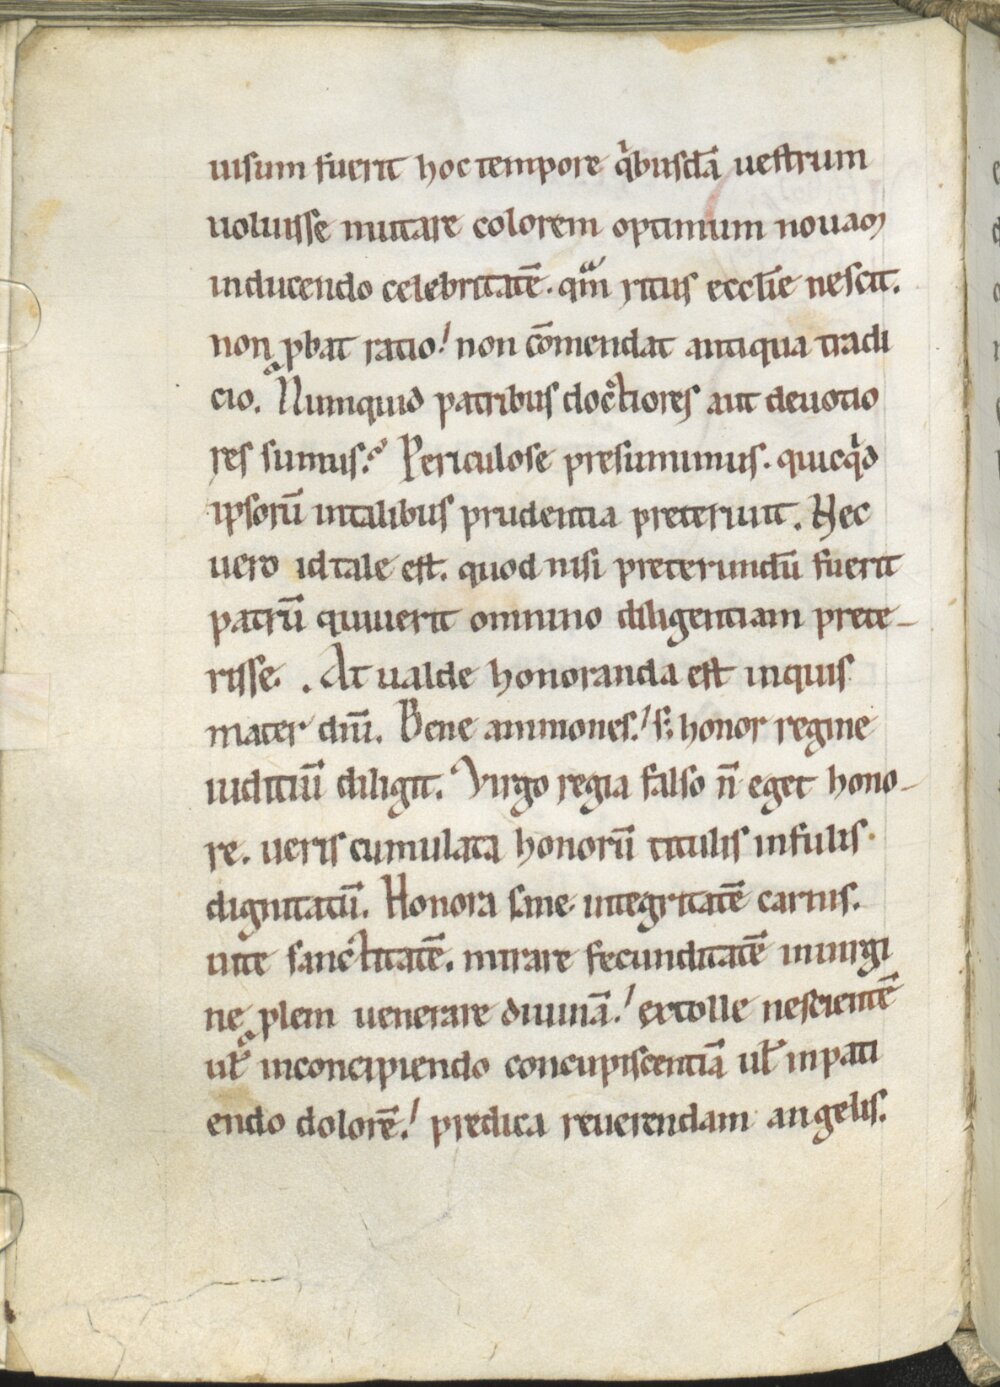 uisum fuerit hoc tempore qͥbusdā uestrum
uoluisse mutare colorem optimum nouam
inducendo celebritatē. quā ritus eccl̄ie nescit.
non ꝓbat ratio! non cōmendat antiqua tradi
cio. Numquid patribus doctiores aut deuotio
res sumus? Periculose presumimus. quicqͥd
ipsorū intalibus prudentia preteriuit. Hec
uero id tale est. quod nisi preterundū fuerit
patrū quiuerit omnino diligentiam prete-
risse. At ualde honoranda est inquis
mater dn̄i. Bene ammones! s; honor regine
iuditiū diligit. Virgo regia falso n̄ eget hono-
re. ueris cumulata honorū titulis infulis
dignitatū. Honora sane integritatē carnis.
uite sanctitatē. mirare fecunditatē inuirgi
ne ꝓlem uenerare diuinā! extolle nescientē
ul̄ inconcipiendo concupiscentiā ul̄ inpati
endo dolorē! predica reuerendam angelis.